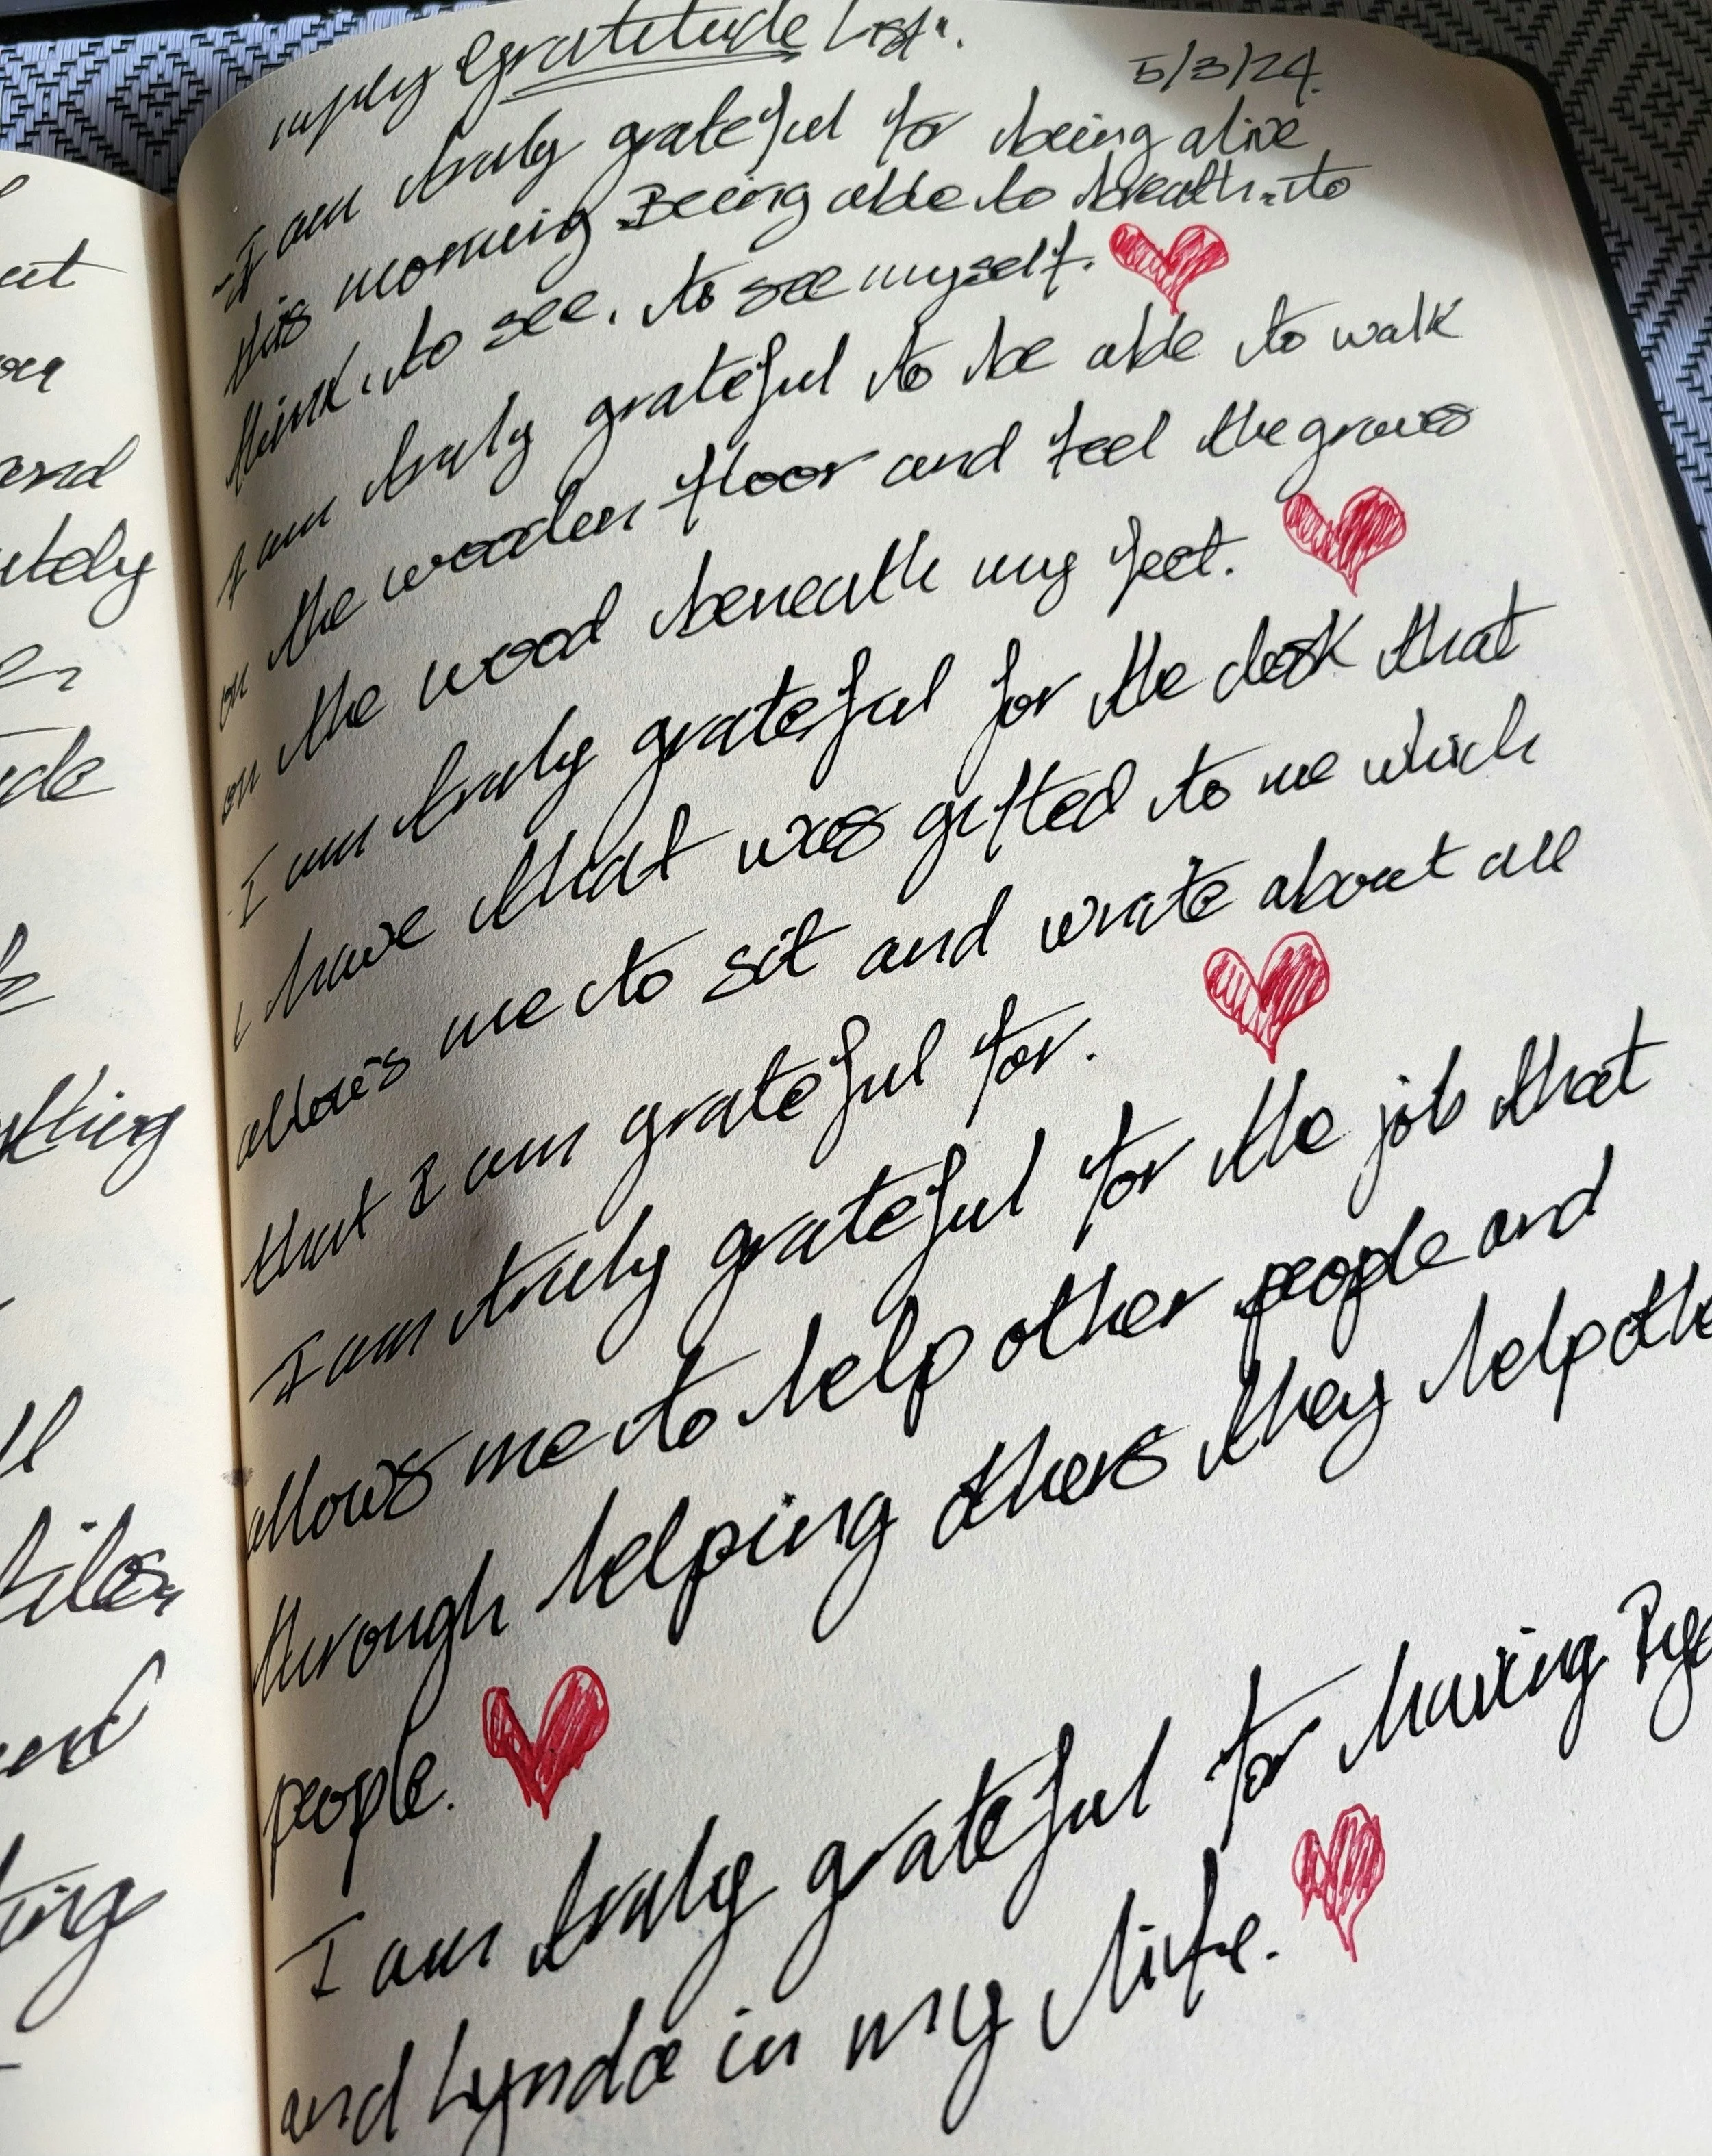 out
and
thing
Gratitude List.
5/3/24.
I am truly grateful for being alive
this morning Being able to breath. to
think, to see, to see myself.
I am truly grateful to be able to walk
on the wooden floor and feel the
on the wood beneath my feet.
I am truly grateful for the desk that
I have that was gifted to me which
allows me to sit and write about all
that I am grateful for.
I am truly grateful for the job that
allows me to help other people and
through helping others they help othe
people.
I am truly grateful for having
and Lynda in my life.